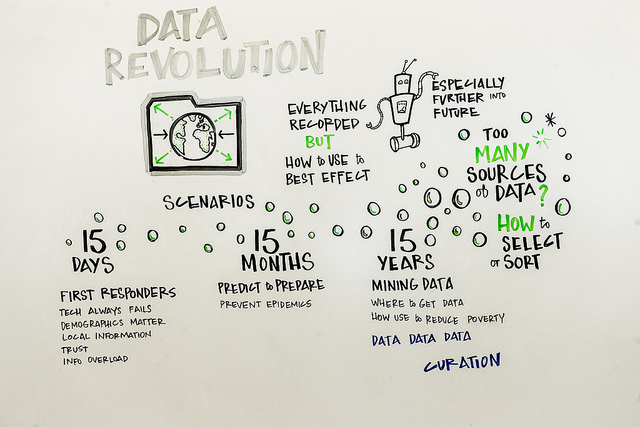 DATA
REVOLUTION
EVERYTHING
RECORDED
BUT
HOW to USE to
BEST EFFECT
ESPECIALLY
FURTHER INTO
FUTURE
TOO
MANY
SOURCES
of DATA?
HOW to
SELECT
or SORT
SCENARIOS
15
DAYS
FIRST RESPONDERS
TECH ALWAYS FAILS
DEMOGRAPHICS MATTER
LOCAL INFORMATION
TRUST
INFO OVERLOAD
15
MONTHS
PREDICT to PREPARE
PREVENT EPIDEMICS
15
YEARS
MINING DATA
WHERE to GET DATA
HOW USE to REDUCE POVERTY
DATA DATA DATA
CURATION